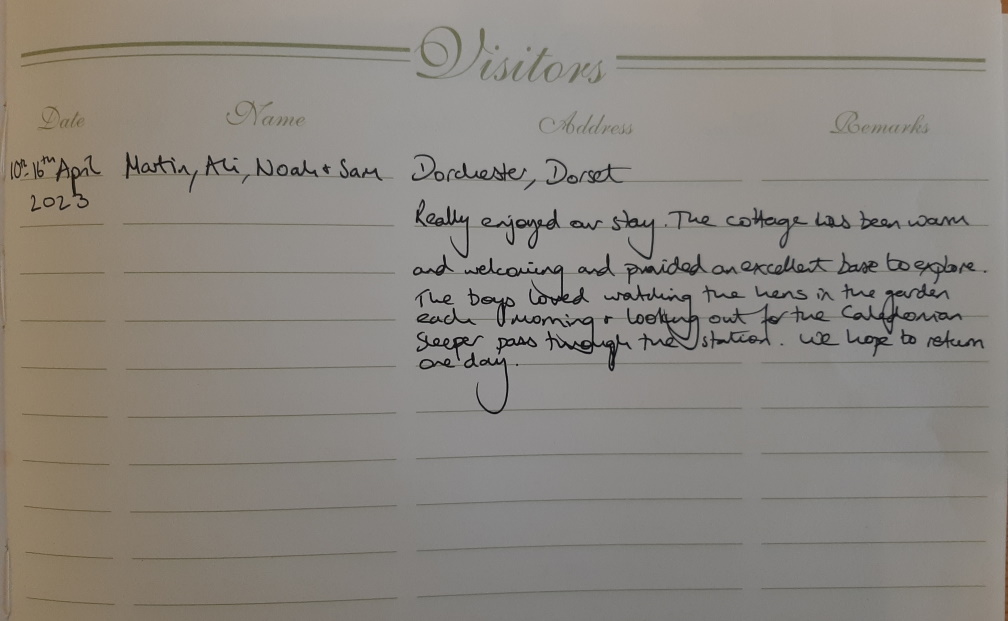 Visitors
Date Name Address Remarks
10th-16th April Martin, Ali, Noah + Sam Dorchester, Dorset
2023
Really enjoyed our stay. The cottage has been warm
and welcoming and provided an excellent base to explore.
The boys loved watching the hens in the garden
each morning + looking out for the Caledonian
Sleeper pass through the station. We hope to return
one day.